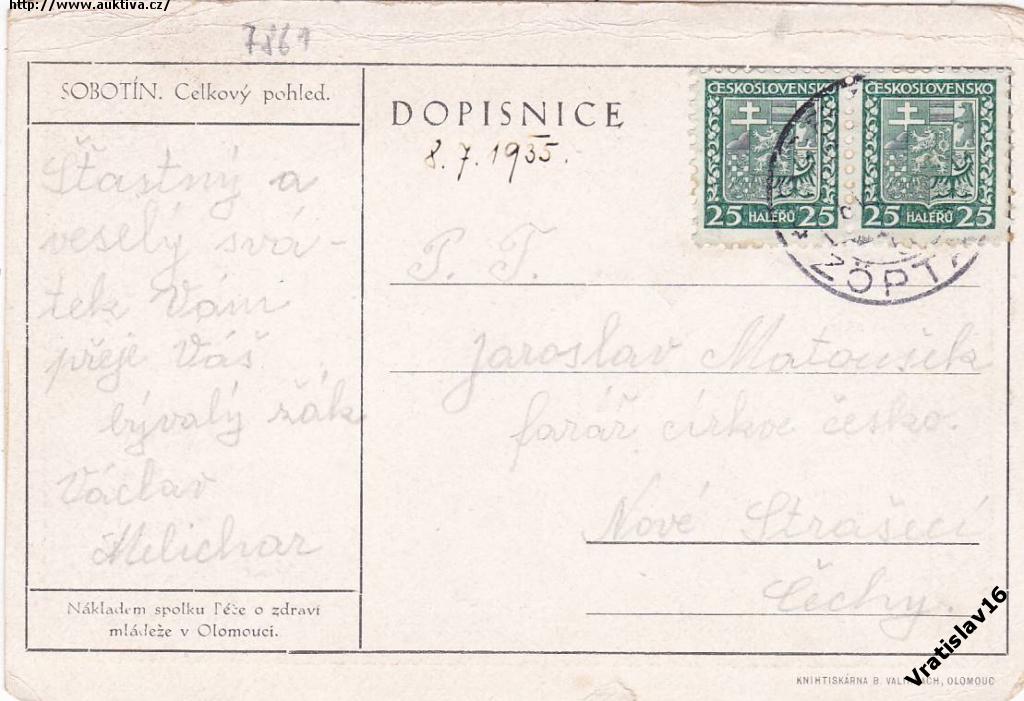 http://www.auktiva.cz/
7861
SOBOTÍN. Celkový pohled.
Šťastný a
veselý svá-
tek Vám
přeje Váš
bývalý žák
Václav
Melichar
Nákladem spolku Péče o zdraví
mládeže v Olomouci.
DOPISNICE
8.7.1935.
ČESKOSLOVENSKO
25 HALÉŘŮ 25
ČESKOSLOVENSKO
25 HALÉŘŮ 25
P. T.
Jaroslav Matoušek
farář církve česko.
Nové Strašecí
Čechy.
KNIHTISKÁRNA B. OLOMOUC
Vratislav16